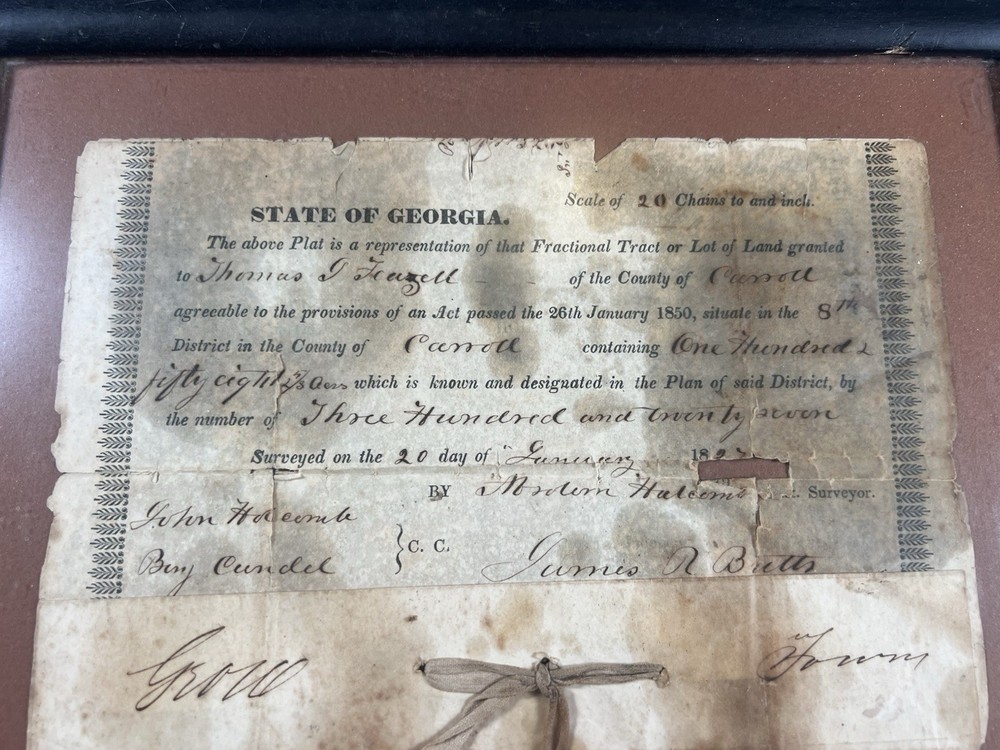 Scale of 20 Chains to and inch.
STATE OF GEORGIA.
The above Plat is a representation of that Fractional Tract or Lot of Land granted
to Thomas J Feazell of the County of Carroll
agreeable to the provisions of an Act passed the 26th January 1850, situate in the 8th
District in the County of Carroll containing One Hundred &
fifty eight which is known and designated in the Plan of said District, by
the number of Three Hundred and twenty seven
Surveyed on the 20 day of January 182
BY Holcomb Surveyor.
John Holcomb
C. C.
Benj Candel James R Butts
Geo W Towns